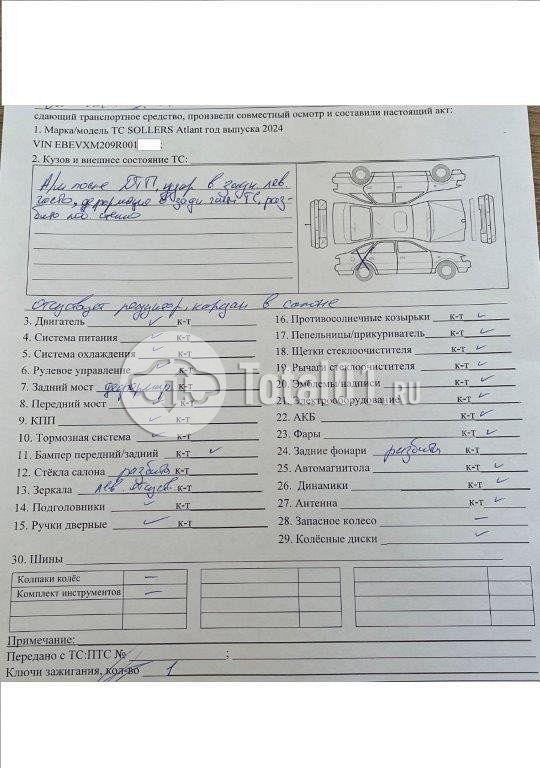 сдающий транспортное средство, произвели совместный осмотр и составили настоящий акт:
1. Марка/модель ТС SOLLERS Atlant год выпуска 2024
VIN EBEVXM209R001
2. Кузов и внешнее состояние ТС:
А/м после ДТП, удар в задн. лев.
часть, деформация задн. части ТС, раз-
бито стекло
Отсутствует редуктор, кардан в салоне
3. Двигатель ✓ к-т
4. Система питания ✓ к-т
5. Система охлаждения ✓ к-т
6. Рулевое управление ✓ к-т
7. Задний мост к-т
8. Передний мост к-т
9. КПП ✓ к-т
10. Тормозная система ✓ к-т
11. Бампер передний/задний ✓ к-т
12. Стёкла салона разбито к-т
13. Зеркала лев. отсут. к-т
14. Подголовники ✓ к-т
15. Ручки дверные ✓ к-т
16. Противосолнечные козырьки ✓ к-т
17. Пепельницы/прикуриватель ✓ к-т
18. Щетки стеклоочистителя ✓ к-т
19. Рычаги стеклоочистителя ✓ к-т
20. Эмблемы/надписи ✓ к-т
21. Электрооборудование ✓ к-т
22. АКБ ✓ к-т
23. Фары ✓ к-т
24. Задние фонари разбиты к-т
25. Автомагнитола ✓ к-т
26. Динамики ✓ к-т
27. Антенна ✓ к-т
28. Запасное колесо –
29. Колёсные диски ✓
30. Шины
Колпаки колёс –
Комплект инструментов –
Примечание:
Передано с ТС:ПТС № ;
Ключи зажигания, кол-во 1
Total01.ru